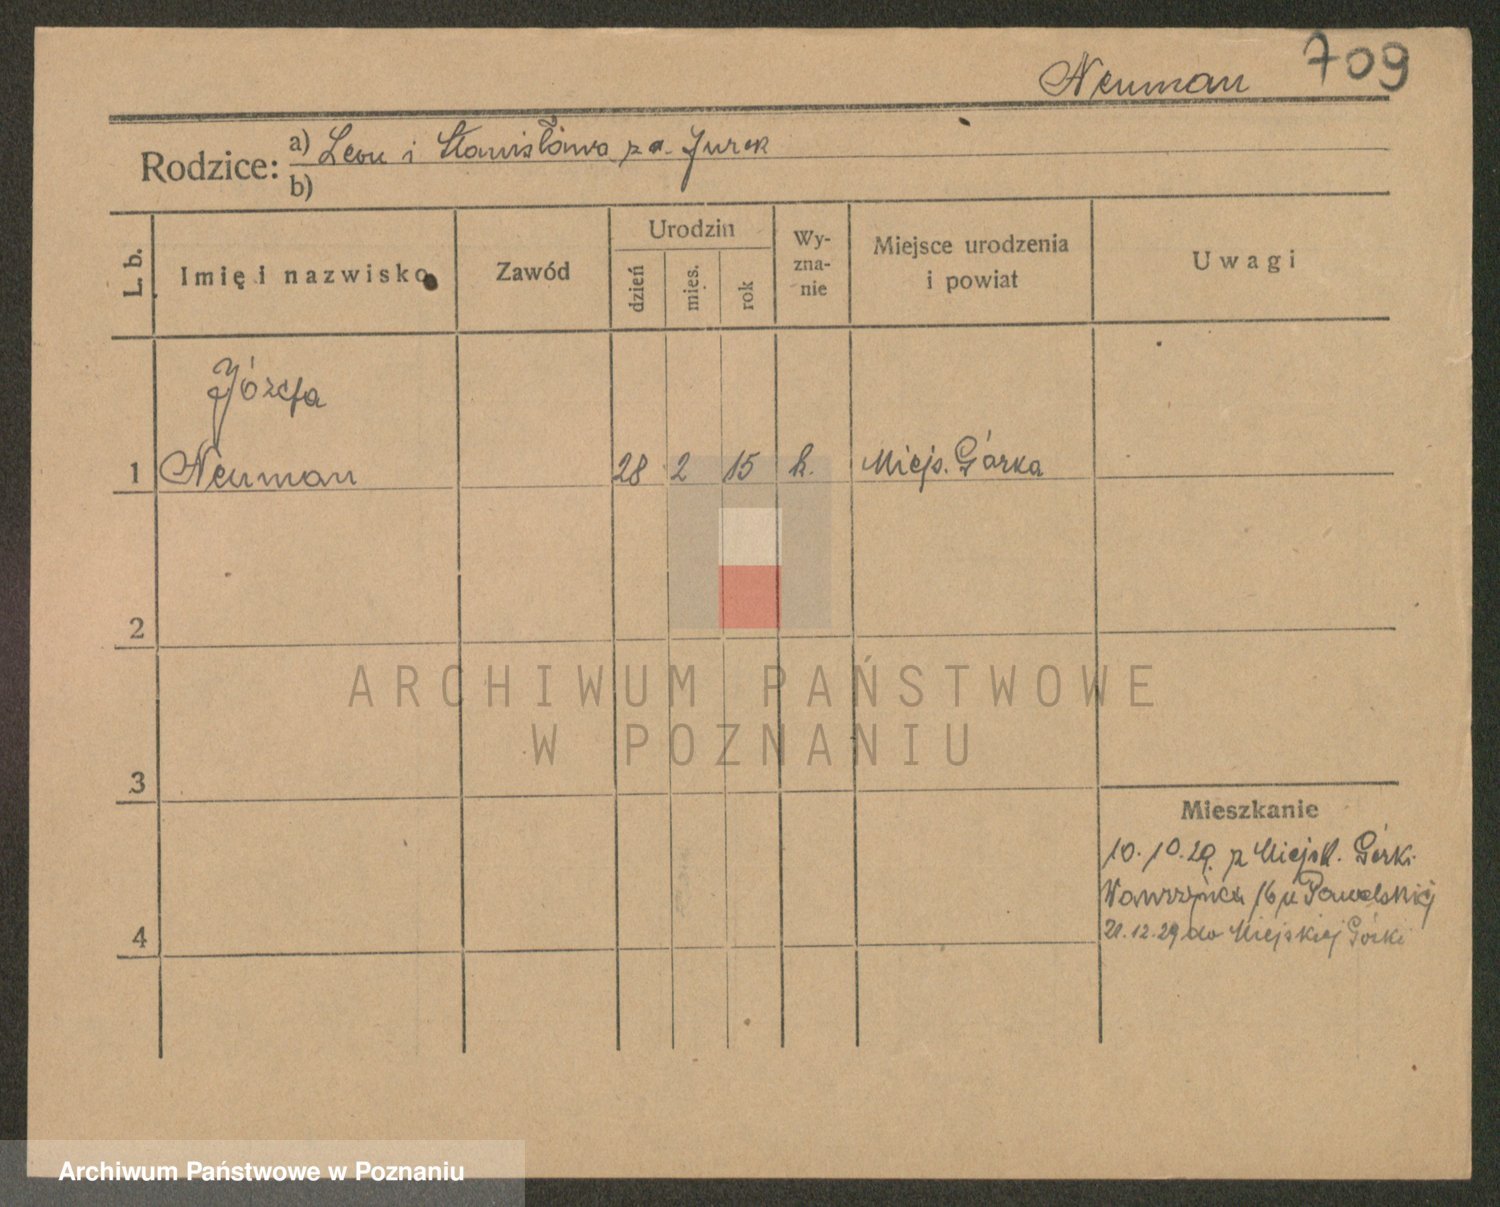 Neuman 709
Rodzice: a) Leon i Stanisława z d. Jurek
b)
L. b.
Imię i nazwisko
Zawód
Urodzin
dzień
mies.
rok
Wy-
zna-
nie
Miejsce urodzenia
i powiat
Uwagi
Józefa
1 Neuman 28 2 15 k. Miejs. Górka
2
ARCHIWUM PAŃSTWOWE
W POZNANIU
3
Mieszkanie
10.10.29. z Miejsk. Górki
Wawrzyńca 16 u Pawelskiej
21.12.29 do Miejskiej Górki
4
Archiwum Państwowe w Poznaniu